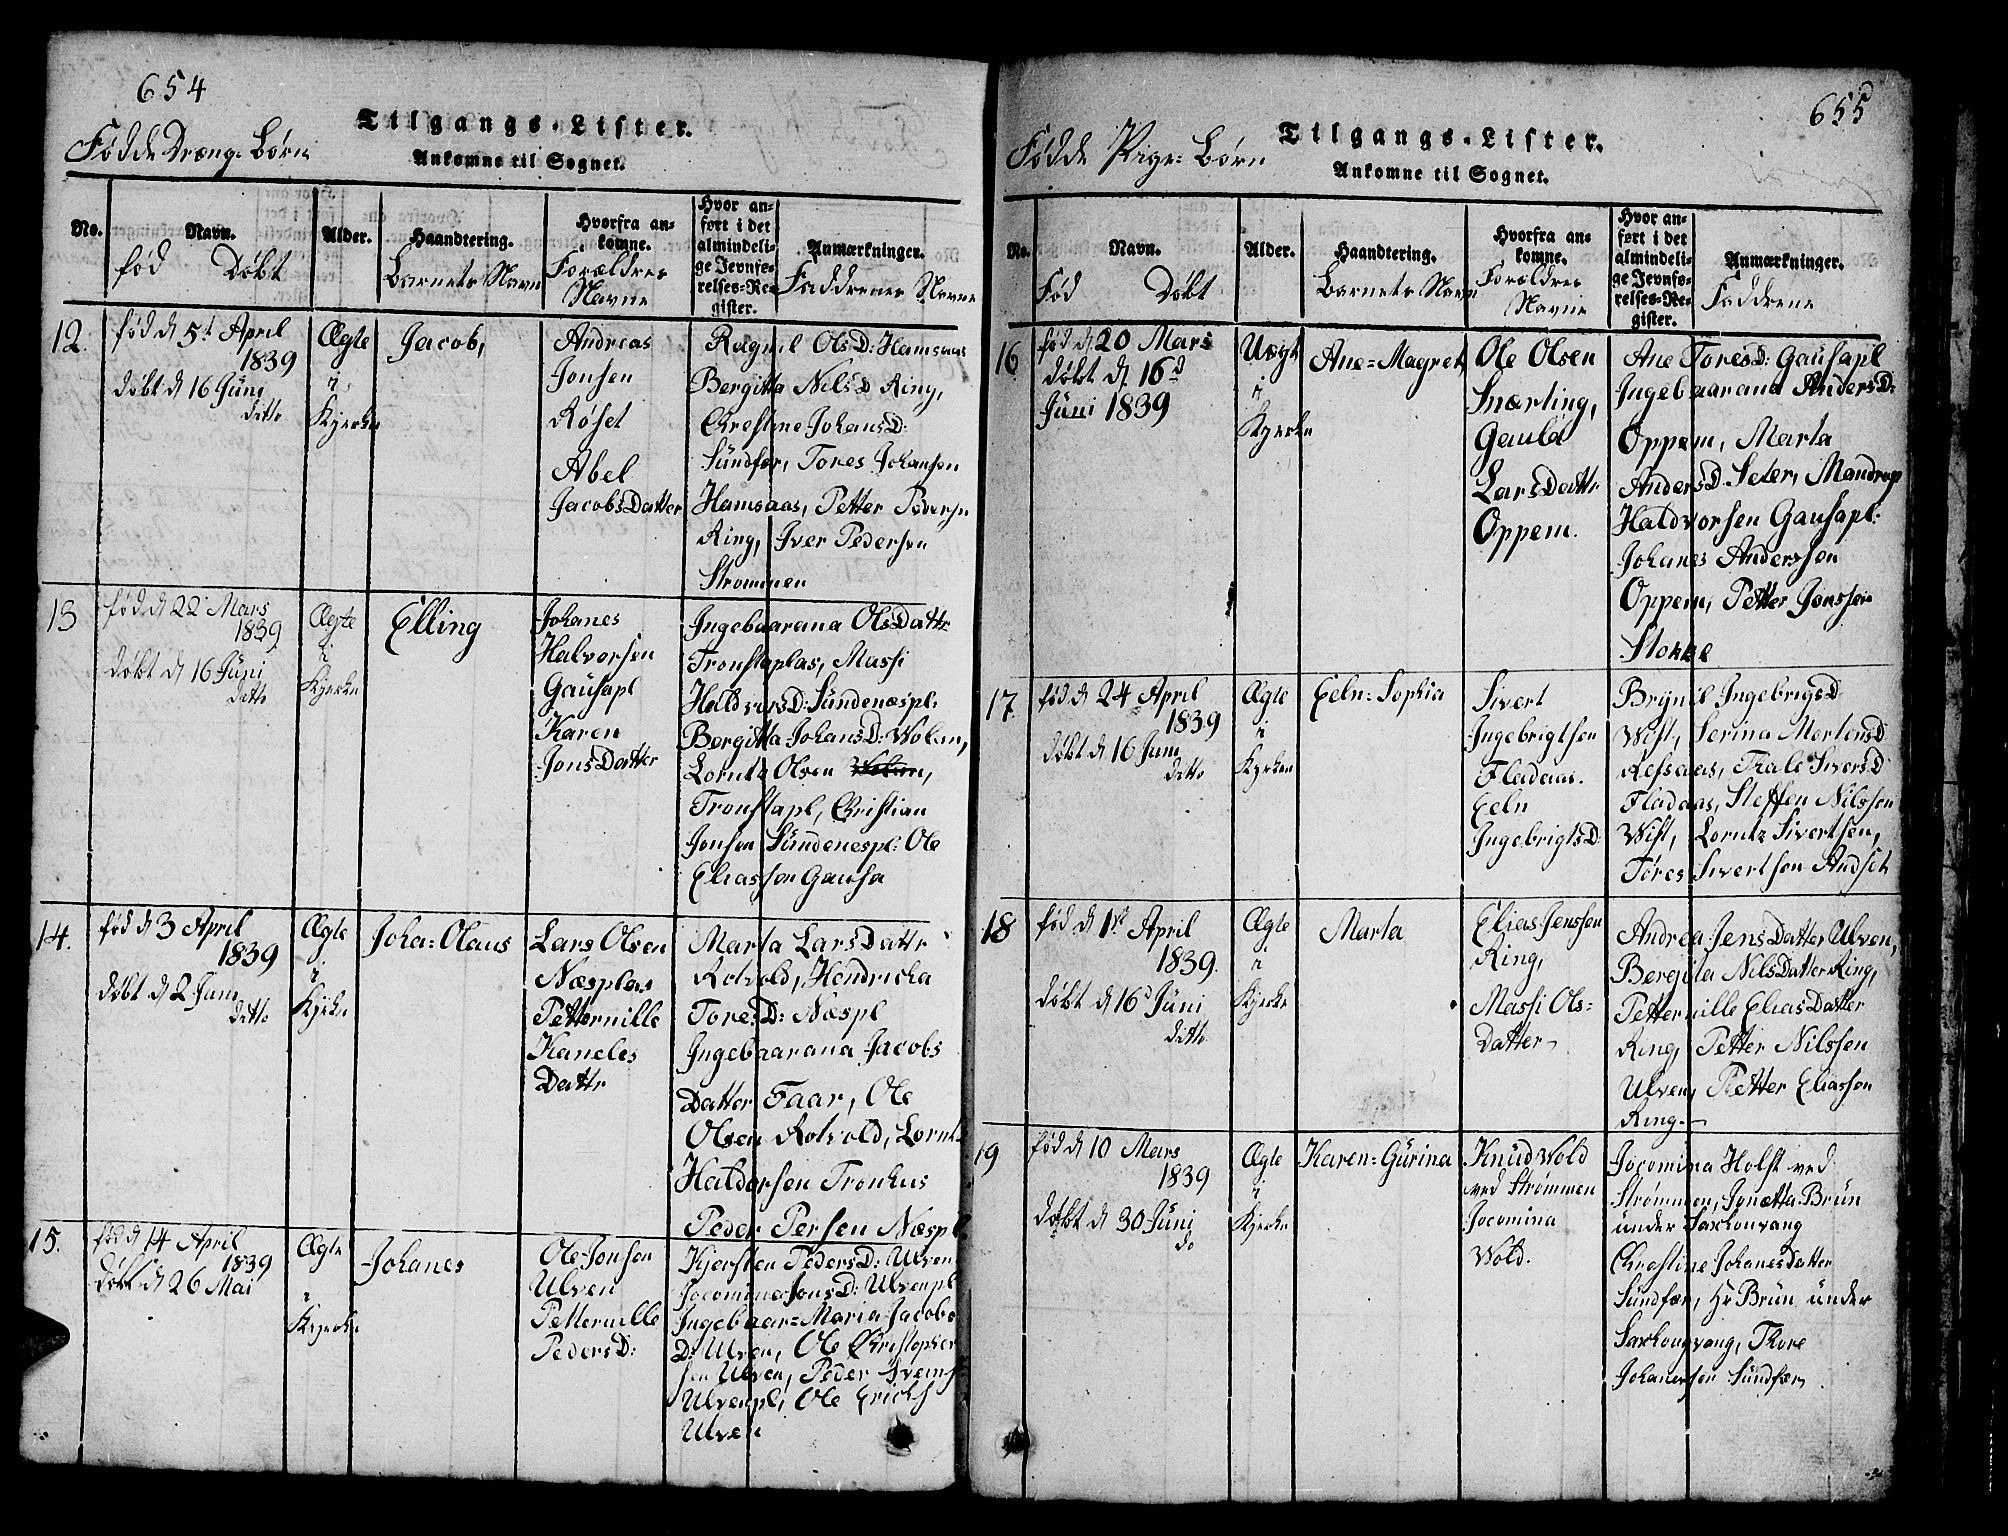 654
Tilgangs-Lister.
Fødde Dreng: Børn
Ankomne til Sognet.
No.
Navn.
Alder.
Haandtering.
Hvorfra an-
komne.
Hvor an-
ført i det
almindeli-
ge Jevnfø-
relses-Re-
gister.
Anmærkninger.
fød Døbt
Barnets Navn
Forældres
Navne
Faddrenes Navne
12.
fød d 5t April
1839
døbt d 16 Juni
ditto
Ægte
i
Kjerke
Jacob,
Andreas
Jonsen
Røset
Abel
JacobsDatter
Ragnil OlsD: Hamsaas
Bergitta NilsD Ring,
Christine JohansD:
Sundfær, Tores Johansen
Hamsaas, Petter Pedersen
Ring, Iver Pedersen
Strommen
13
fød d 22 Mars
1839
døbt d 16 Juni
ditto
Ægte
i
Kjerke
Elling
Johanes
Halvorsen
Gausapl
Karen
JonsDatter
Ingebaarana OlsDattr
Tronstaplas, Massi
HaldvorsD: Sundenæspl:
Bergitta JohansD: Wolan,
Lorntz Olsen Wolan,
Tronstapl, Christian
Jonsen Sundenespl: Ole
Eliassen Gausa
14.
fød d 3 April
1839
døbt d 2 Juni
ditto
Ægte
i
Kjerke
Joha=Olaus
Lars Olsen
Næsplas
Petternille
Kaneles
Dattr
Marta LarsDattr
Rotvold, Hendricka
ToresD: Næspl
Ingebaarana Jacobs
Datter Faar, Ole
Olsen Rotvold, Lorntz
Haldorsen Tronhus
Peder Persen Næspl
15.
fød d 14 April
1839
Døbt d 26 Mai
Ægte
i
Kjerke
Johanes
Ole Jonsen
Ulven
Petternille
PedersD:
Kjersten PedersD: Ulven
Jocomina JonsD: Ulvenpl
Ingebaar=Maria Jacobs
D: Ulven, Ole Christopher
sen Ulven, Peder Svens
Ulvenpl, Ole Erichs
Ulven
655
Tilgangs-Lister.
Fødde Pige: Børn
Ankomne til Sognet.
No.
Navn.
Alder.
Haandtering.
Hvorfra an-
komne.
Hvor an-
ført i det
almindeli-
ge Jevnfø-
relses-Re-
gister.
Anmærkninger.
Fød Døbt
Barnets Navn
Forældres
Navne
Faddrene
16
fød d 20 Mars
døbt d 16d
Juni 1839
Uægt
i
Kjerke
Ane=Magret,
Ole Olsen
Snærting,
Gaulø
LarsDattr
Oppem.
Ane ToresD: Gausapl
Ingebaarana AndersD:
Oppem, Marta
AndersD Seter, Mandrup
Haldvorsen Gausapl:
Johanes Anderssen
Oppem, Petter Jonssen
Stokke
17.
fød d 24 April
1839
døbt d 16 Juni
ditto
Ægte
i
Kjerke
Eeln=Sophia
Sivert
Ingebrigtsen
Fladaas.
Eeln
IngebrigtsD:
Brynil IngebrigsD
Wist, Serina MortensD
Ressaas, Trale SiversD
Fladaas, Steffen Nilssen
Wist, Lorntz Sivertsen,
Tores Sivertsen Andset
18
fød d 1st April
1839.
døbt d 16d Juni
ditto
Ægte
i
Kjerke
Marta
Elias Jenssen
Ring,
Massi Ols=
Datter
Andrea JensDatter Ulven,
Bergita NilsDatter Ring,
Petternille EliasDatter
Ring, Petter Nilssen
Ulven, Petter Eliassen
Ring
19
fød d 10 Mars
1839
døbt d 30 Juni
do
Ægte
i
Kjerke
Karen=Gurina
Knud Wold
ved Strømmen
Jocomina
Wold.
Jocomina Holst ved
Strømmen, Jonetta Brun
under Saxhougvang
Christine JohanesDatter
Sundfær, Hr Brun under
Saxhougvang, Thore
Johanesen Sundfær